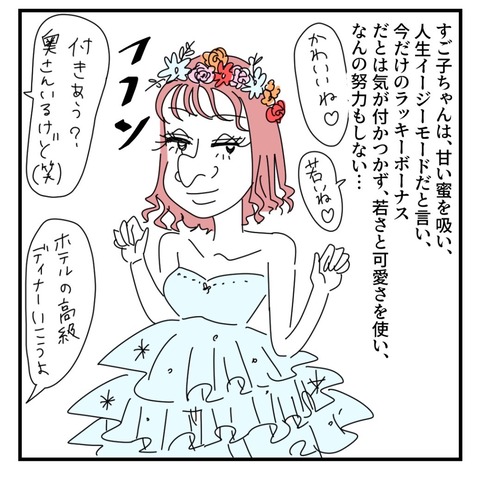 すご子ちゃんは、甘い蜜を吸い、
人生イージーモードだと言い、
今だけのラッキーボーナス
だとは気が付かつかず、若さと可愛さを使い、
なんの努力もしない…
かわいいね♡
若いね♡
フフン
付きあう？
奥さんいるけど(笑)
ホテルの高級
ディナーいこうよ